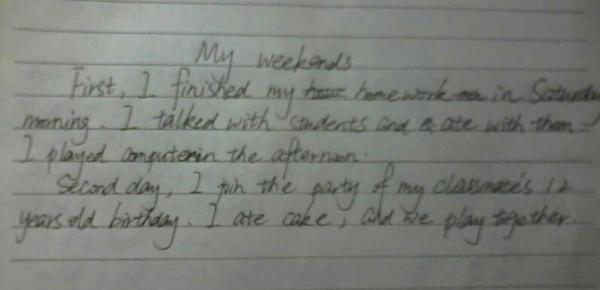 My weekends
First, I finished my homework in Saturday
morning. I talked with students and ate with them.
I played computer in the afternoon.
Second day, I join the party of my classmate's 12
years old birthday. I ate cake, and we play together.